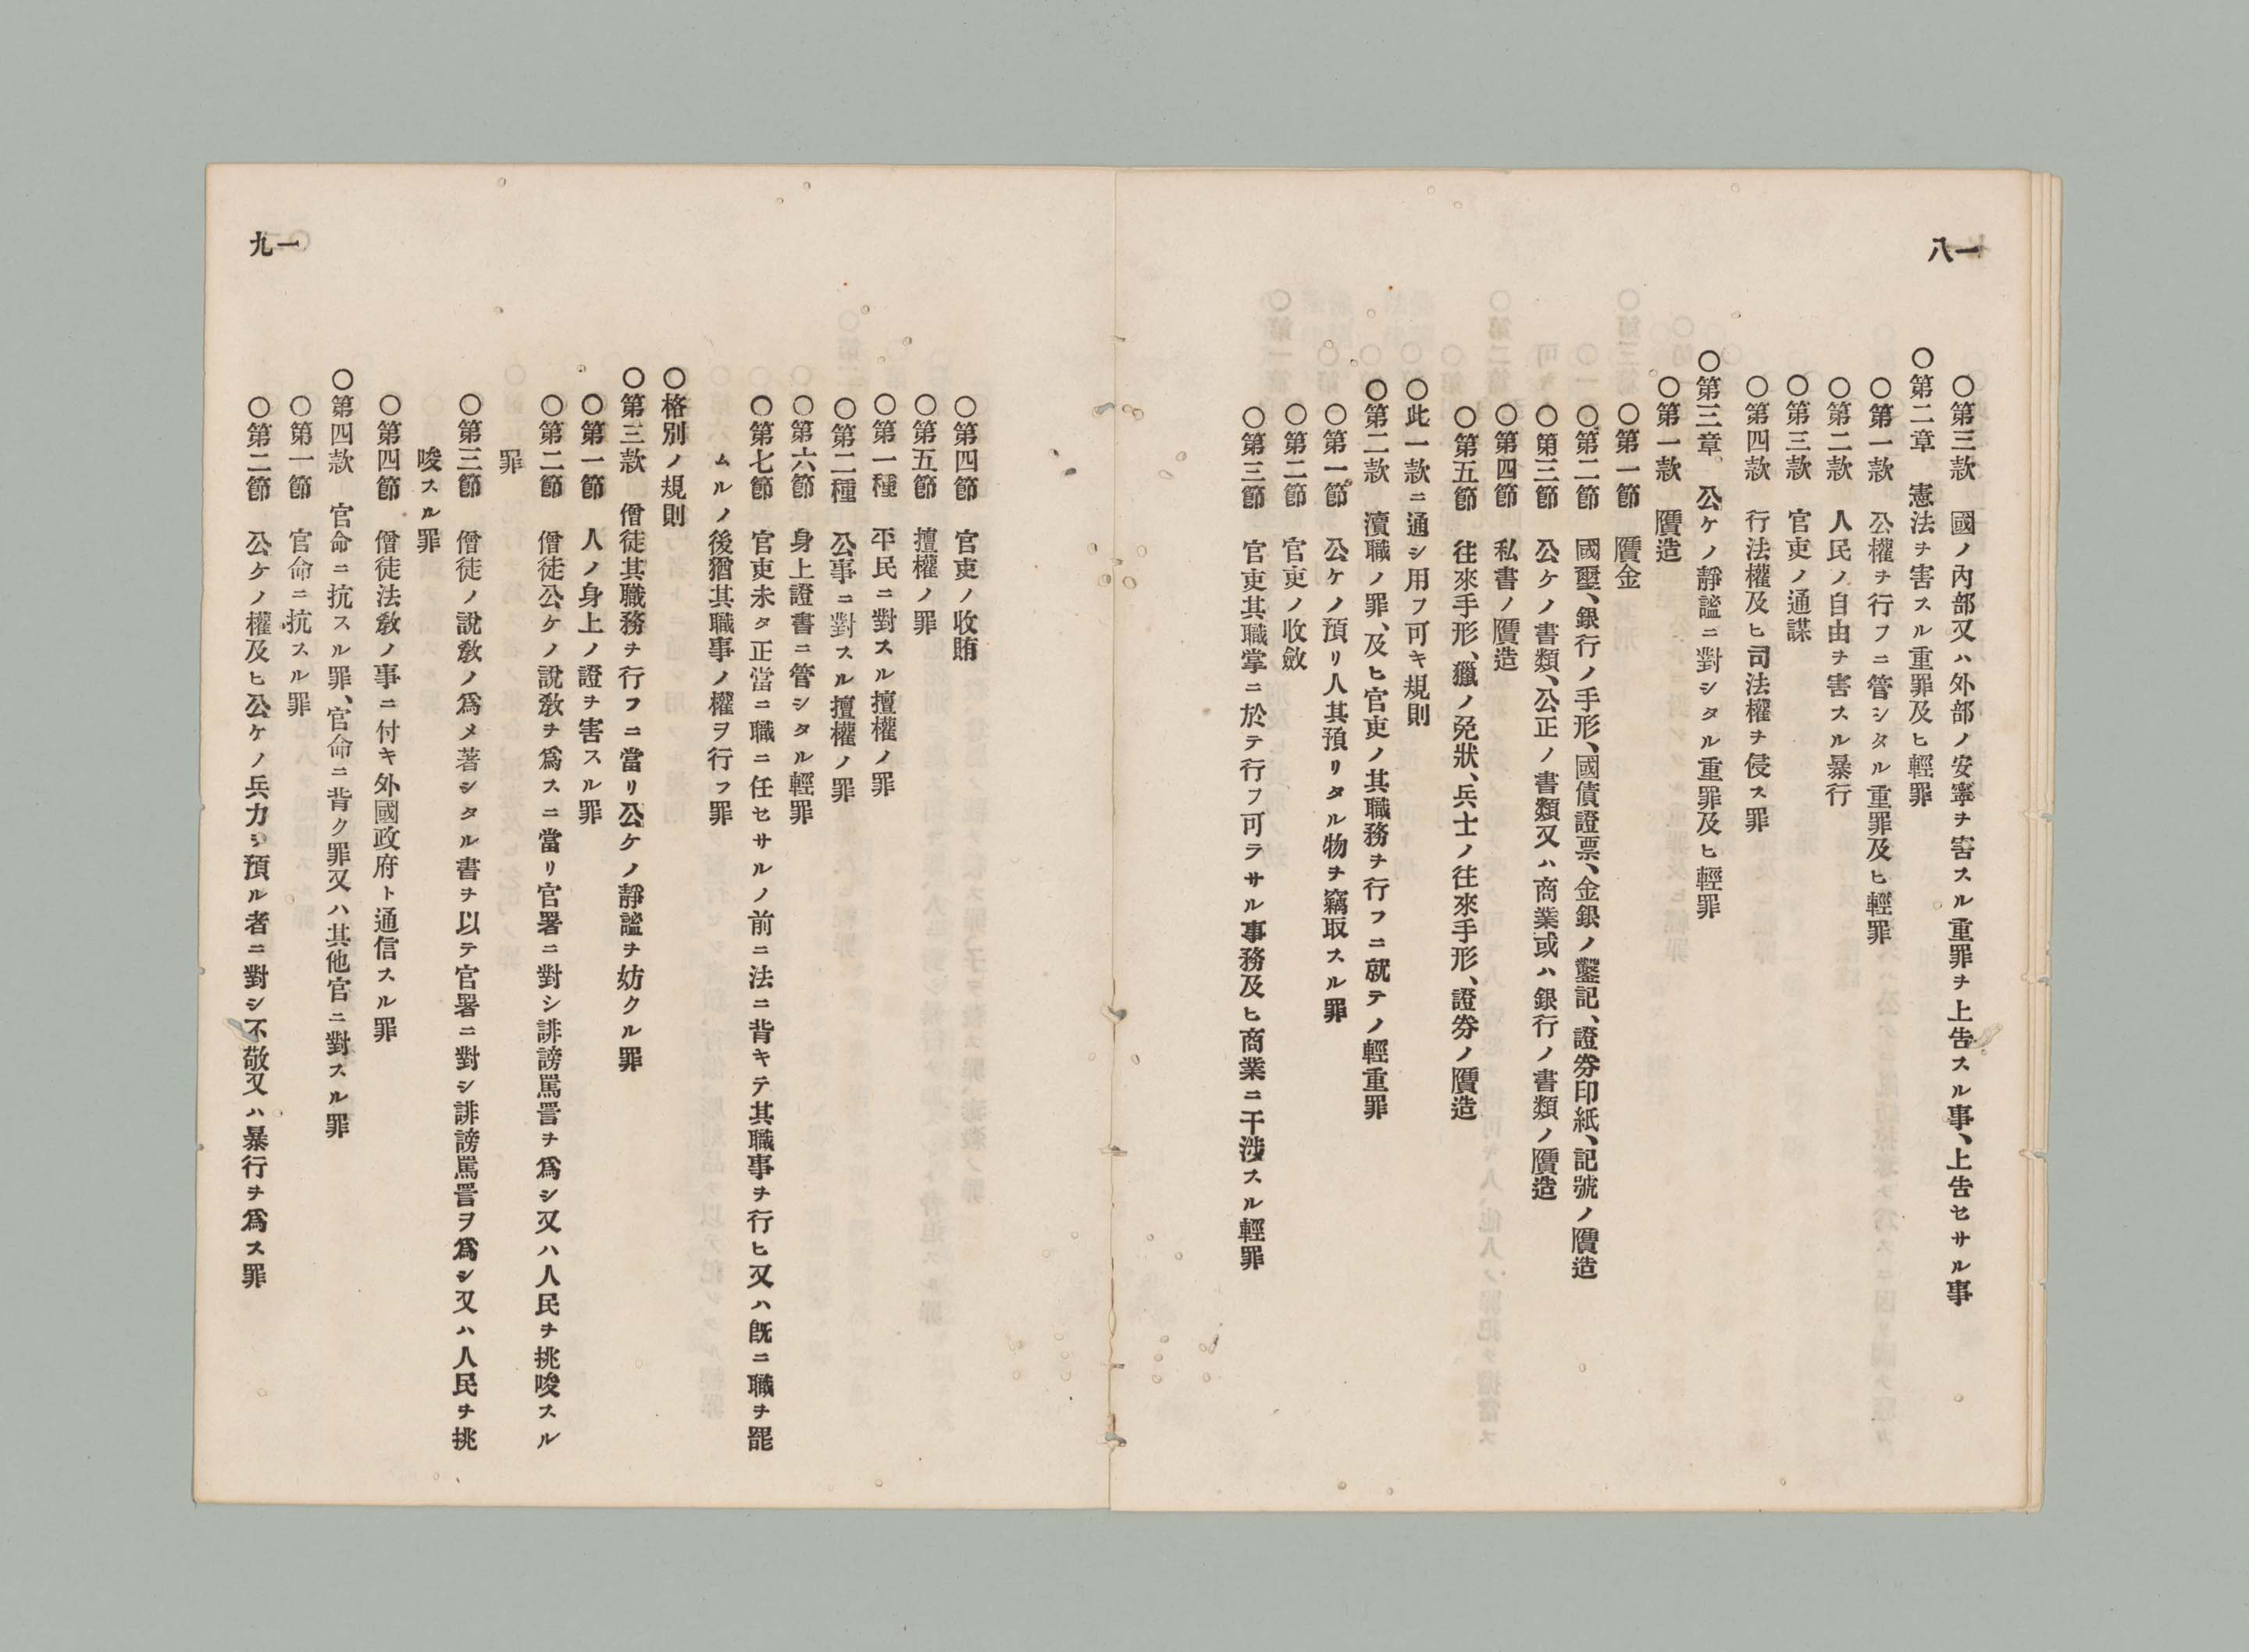 一八
〇第三款　國ノ內部又ハ外部ノ安寧ヲ害スル重罪ヲ上告スル事、上告セサル事
〇第二章　憲法ヲ害スル重罪及ヒ輕罪
〇第一款　公權ヲ行フニ管シタル重罪及ヒ輕罪
〇第二款　人民ノ自由ヲ害スル暴行
〇第三款　官吏ノ通謀
〇第四款　行法權及ヒ司法權ヲ侵ス罪
〇第三章　公ケノ靜謐ニ對シタル重罪及ヒ輕罪
〇第一款　贋造
〇第一節　贋金
〇第二節　國璽、銀行ノ手形、國債證票、金銀ノ鑿記、證券印紙、記號ノ贋造
〇第三節　公ケノ書類、公正ノ書類又ハ商業或ハ銀行ノ書類ノ贋造
〇第四節　私書ノ贋造
〇第五節　往來手形、獵ノ免狀、兵士ノ往來手形、證劵ノ贋造
〇此一款ニ通シ用フ可キ規則
〇第二款　瀆職ノ罪、及ヒ官吏ノ其職務ヲ行フニ就テノ輕重罪
〇第一節　公ケノ預リ人其預リタル物ヲ竊取スル罪
〇第二節　官吏ノ收斂
〇第三節　官吏其職掌ニ於テ行フ可ラサル事務及ヒ商業ニ干涉スル輕罪
一九
〇第四節　官吏ノ收賄
〇第五節　擅權ノ罪
〇第一種　平民ニ對スル擅權ノ罪
〇第二種　公事ニ對スル擅權ノ罪
〇第六節　身上證書ニ管シタル輕罪
〇第七節　官吏未タ正當ニ職ニ任セサルノ前ニ法ニ背キテ其職事ヲ行ヒ又ハ旣ニ職ヲ罷
ムルノ後猶其職事ノ權ヲ行フ罪
〇格別ノ規則
〇第三款　僧徒其職務ヲ行フニ當リ公ケノ靜謐ヲ妨クル罪
〇第一節　人ノ身上ノ證ヲ害スル罪
〇第二節　僧徒公ケノ說敎ヲ爲スニ當リ官署ニ對シ誹謗罵詈ヲ爲シ又ハ人民ヲ挑唆スル
罪
〇第三節　僧徒ノ說敎ノ爲メ著シタル書ヲ以テ官署ニ對シ誹謗罵詈ヲ爲シ又ハ人民ヲ挑
唆スル罪
〇第四節　僧徒法敎ノ事ニ付キ外國政府ト通信スル罪
〇第四款　官命ニ抗スル罪、官命ニ背ク罪又ハ其他官ニ對スル罪
〇第一節　官命ニ抗スル罪
〇第二節　公ケノ權及ヒ公ケノ兵力ニ預ル者ニ對シ不敬又ハ暴行ヲ爲ス罪